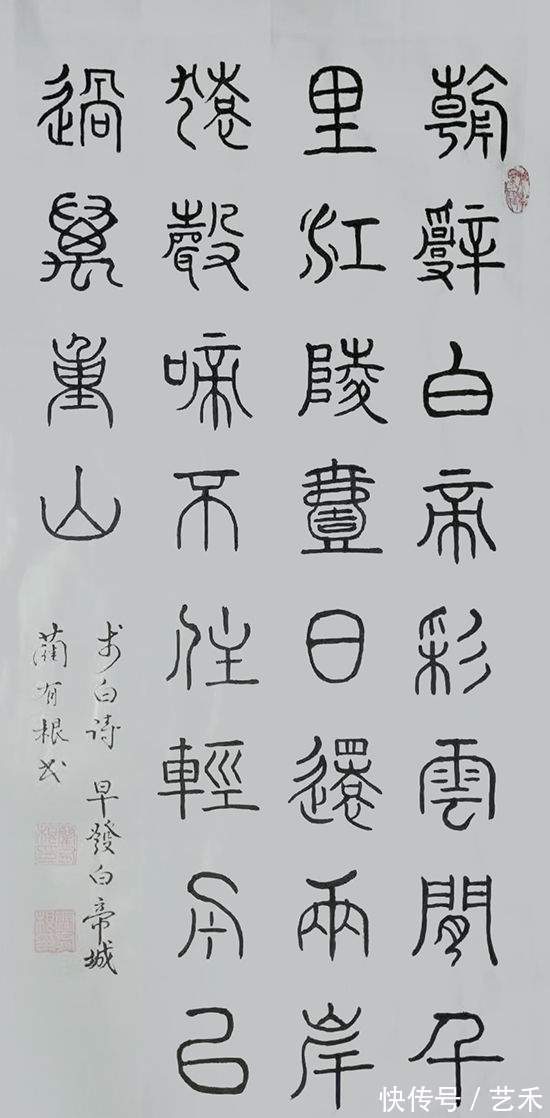 朝辭白帝彩雲間千
里江陵壹日還兩岸
猿聲啼不住輕舟已
過萬重山
李白诗 早發白帝城
藺有根书
快传号 / 艺禾